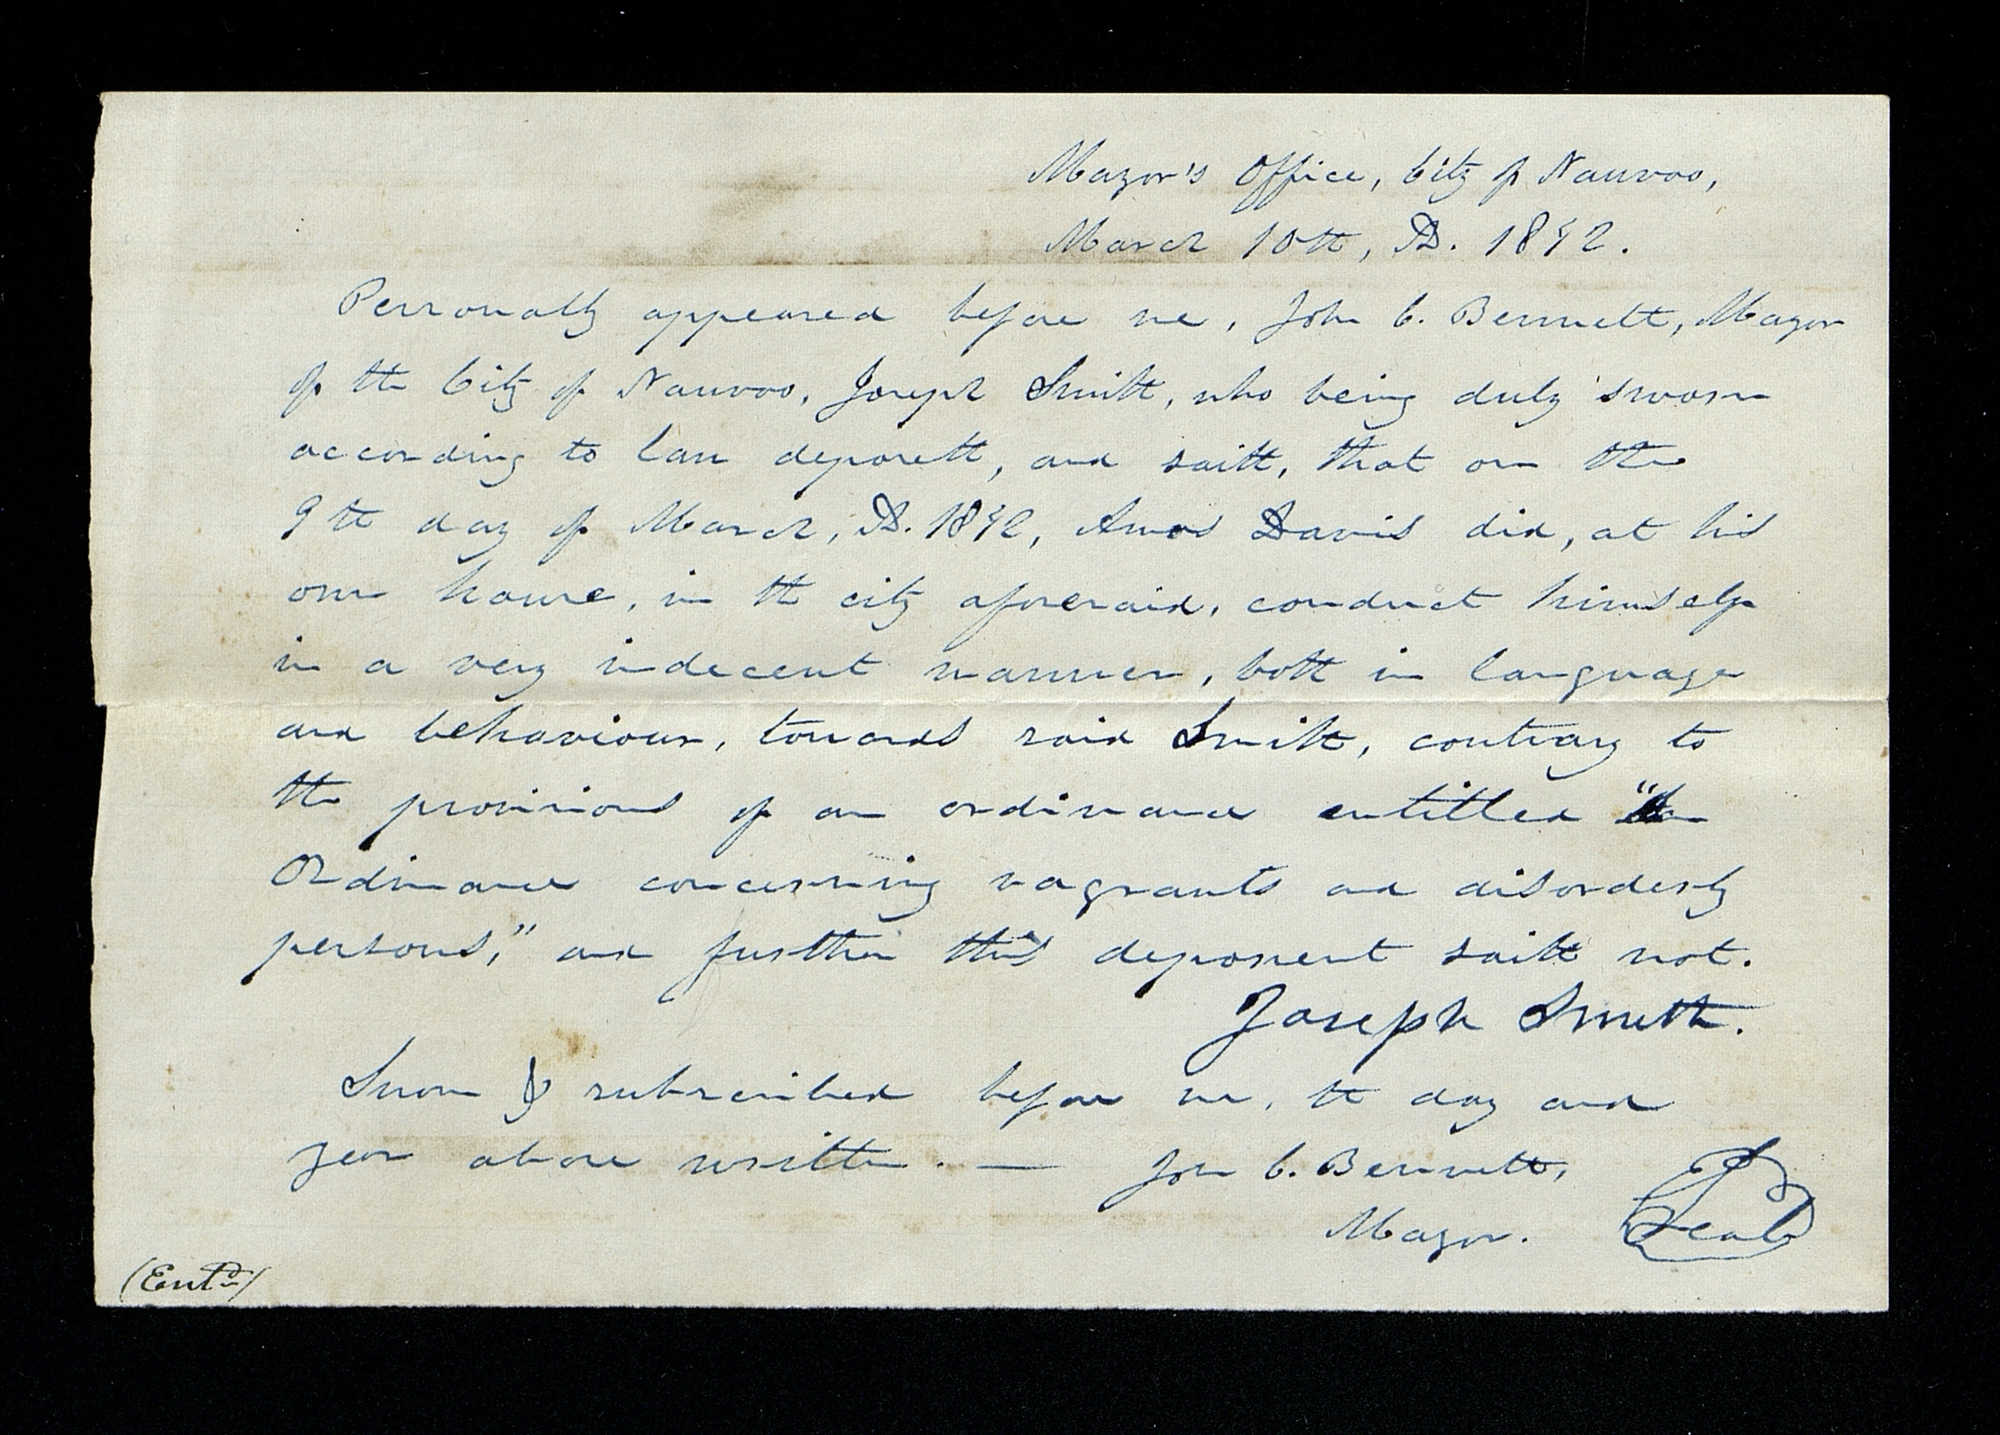 Mayor's Office, City of Nauvoo,
March 10th, AD. 1842.
Personally appeared before me, John C. Bennett, Mayor
of the City of Nauvoo, Joseph Smith, who being duly sworn
according to law deposeth, and saith, that on the
9th day of March, AD. 1842, Amos Davis did, at his
own house, in the city aforesaid, conduct himself
in a very indecent manner, both in language
and behaviour, towards said Smith, contrary to
the provisions of an ordinance entitled "An
Ordinance concerning vagrants and disorderly
persons," and further this deponent saith not.
Joseph Smith.
Sworn & subscribed before me, the day and
year above written. — John C. Bennett,
Mayor. Seal
(Entd)